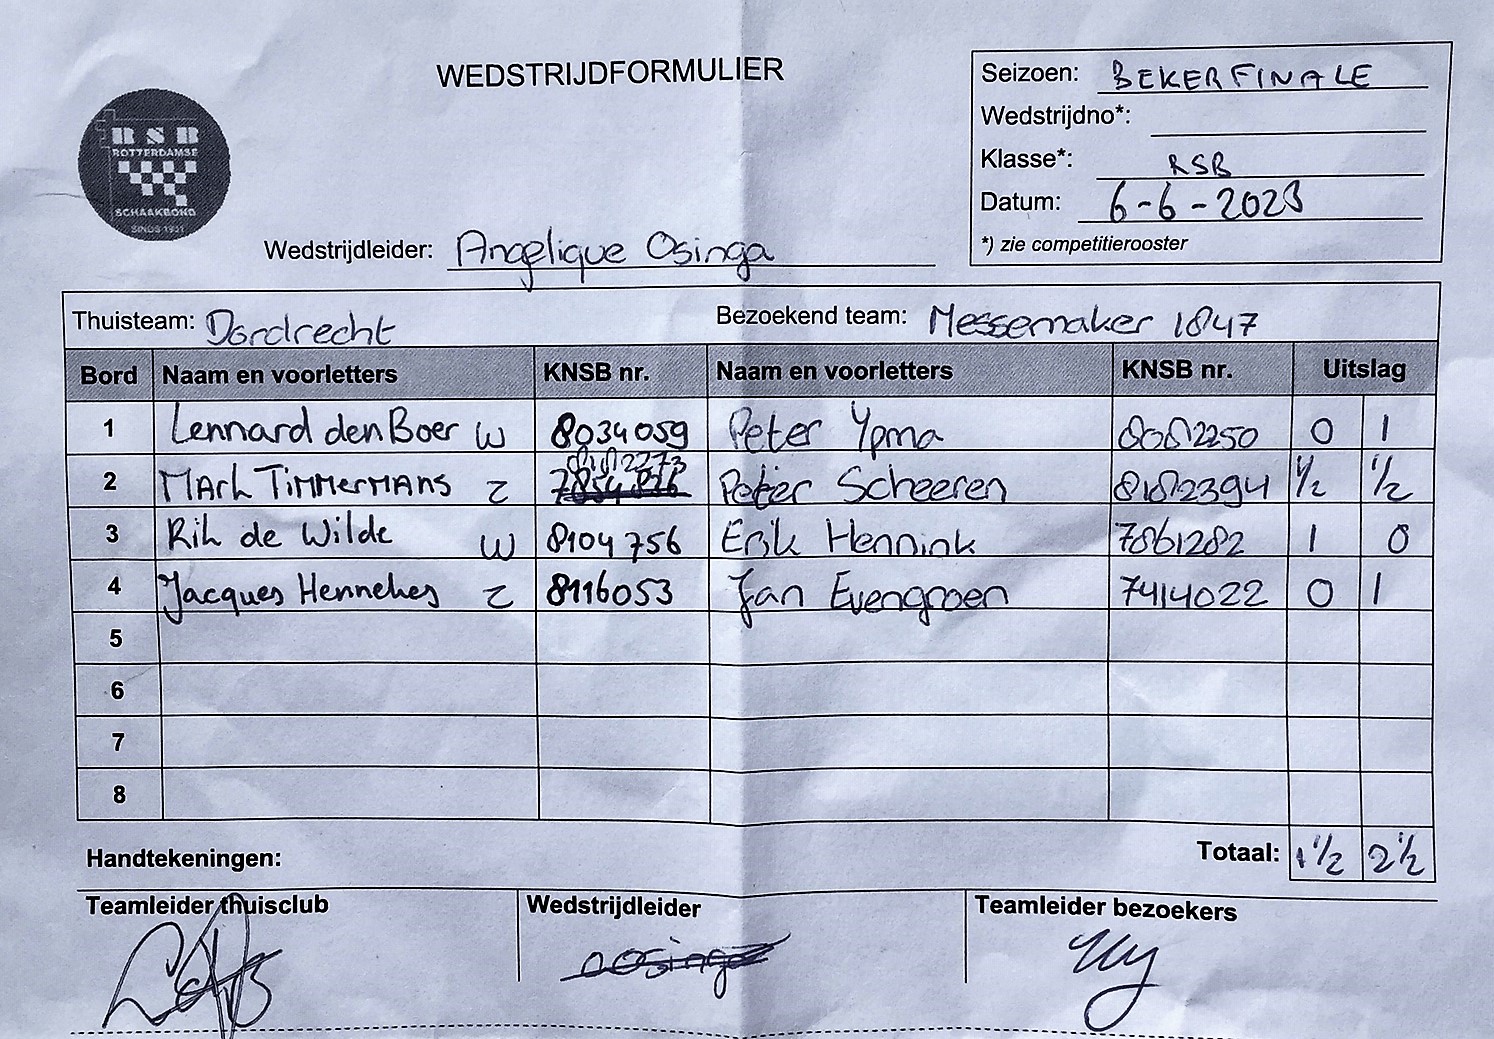 WEDSTRIJDFORMULIER
Seizoen: BEKERFINALE
Wedstrijdno*:
Klasse*: RSB
Datum: 6-6-2023
*) zie competitierooster
RSB
ROTTERDAMSE
SCHAAKBOND
SINDS 1921
Wedstrijdleider: Angelique Osinga
Thuisteam: Dordrecht Bezoekend team: Messemaker 1847
Bord Naam en voorletters KNSB nr. Naam en voorletters KNSB nr. Uitslag
1 Lennard den Boer W 8034059 Peter Ypma 8082250 0 1
2 Mark Timmermans Z 8182273 Peter Scheeren 8182394 1/2 1/2
3 Rik de Wilde W 8104756 Erik Hennink 7861282 1 0
4 Jacques Hennekes Z 8116053 Jan Evengroen 7414022 0 1
5
6
7
8
Handtekeningen: Totaal: 1 1/2 2 1/2
Teamleider thuisclub Wedstrijdleider Teamleider bezoekers
AOsinga